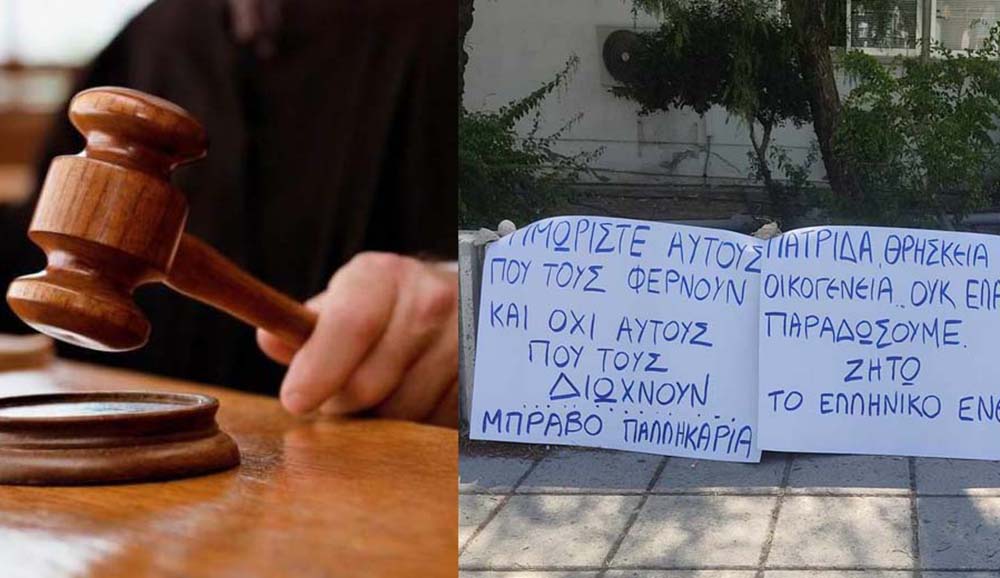 ΤΙΜΩΡΙΣΤΕ ΑΥΤΟΥΣ
ΠΟΥ ΤΟΥΣ ΦΕΡΝΟΥΝ
ΚΑΙ ΟΧΙ ΑΥΤΟΥΣ
ΠΟΥ ΤΟΥΣ
ΔΙΩΧΝΟΥΝ
ΜΠΡΑΒΟ ΠΑΛΛΗΚΑΡΙΑ
ΠΑΤΡΙΔΑ, ΘΡΗΣΚΕΙΑ
ΟΙΚΟΓΕΝΕΙΑ.. ΟΥΚ
ΠΑΡΑΔΩΣΟΥΜΕ.
ΖΗΤΩ
ΤΟ ΕΛΛΗΝΙΚΟ